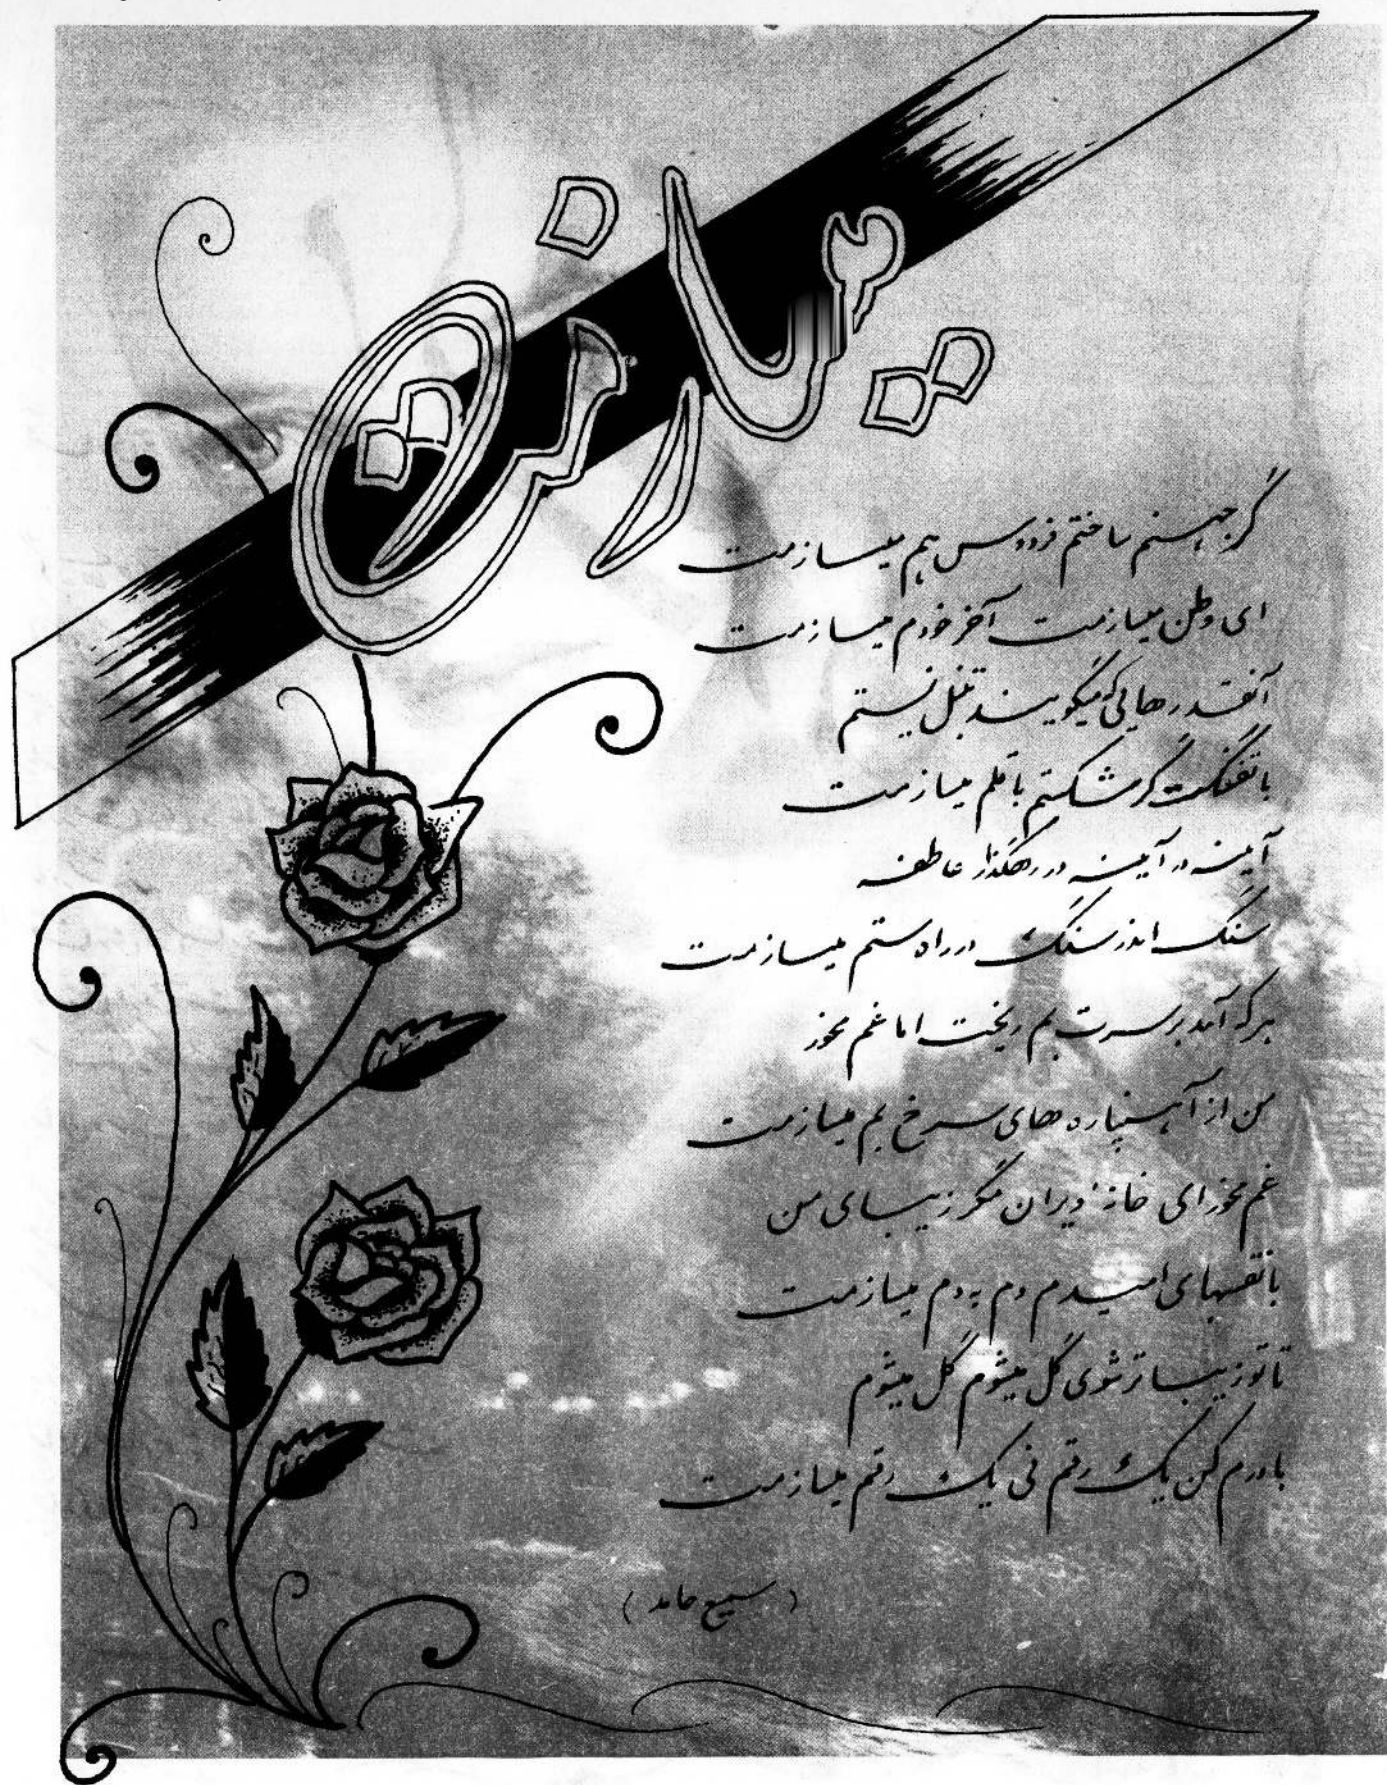 میسازمت
گر جهنم ساختم فردوس هم میسازمت
ای وطن میسازمت آخر خودم میسازمت
آنقدرهایی که میگویند تنبل نیستم
با تفنگت گر شکستم با قلم میسازمت
آیینه در آیینه در رهگذار عاطفه
سنگ اندر سنگ در راه ستم میسازمت
هر که آمد بر سرت بم ریخت اما غم مخور
من از آهنپاره های سرخ بم میسازمت
غم مخور ای خانهٔ ویران مگر زیبای من
با نفسهای امیدم دم به دم میسازمت
تا تو زیباتر شوی گل میشوم گل میشوم
باورم کن یک رقم نی یک رقم میسازمت
(سمیع حامد)